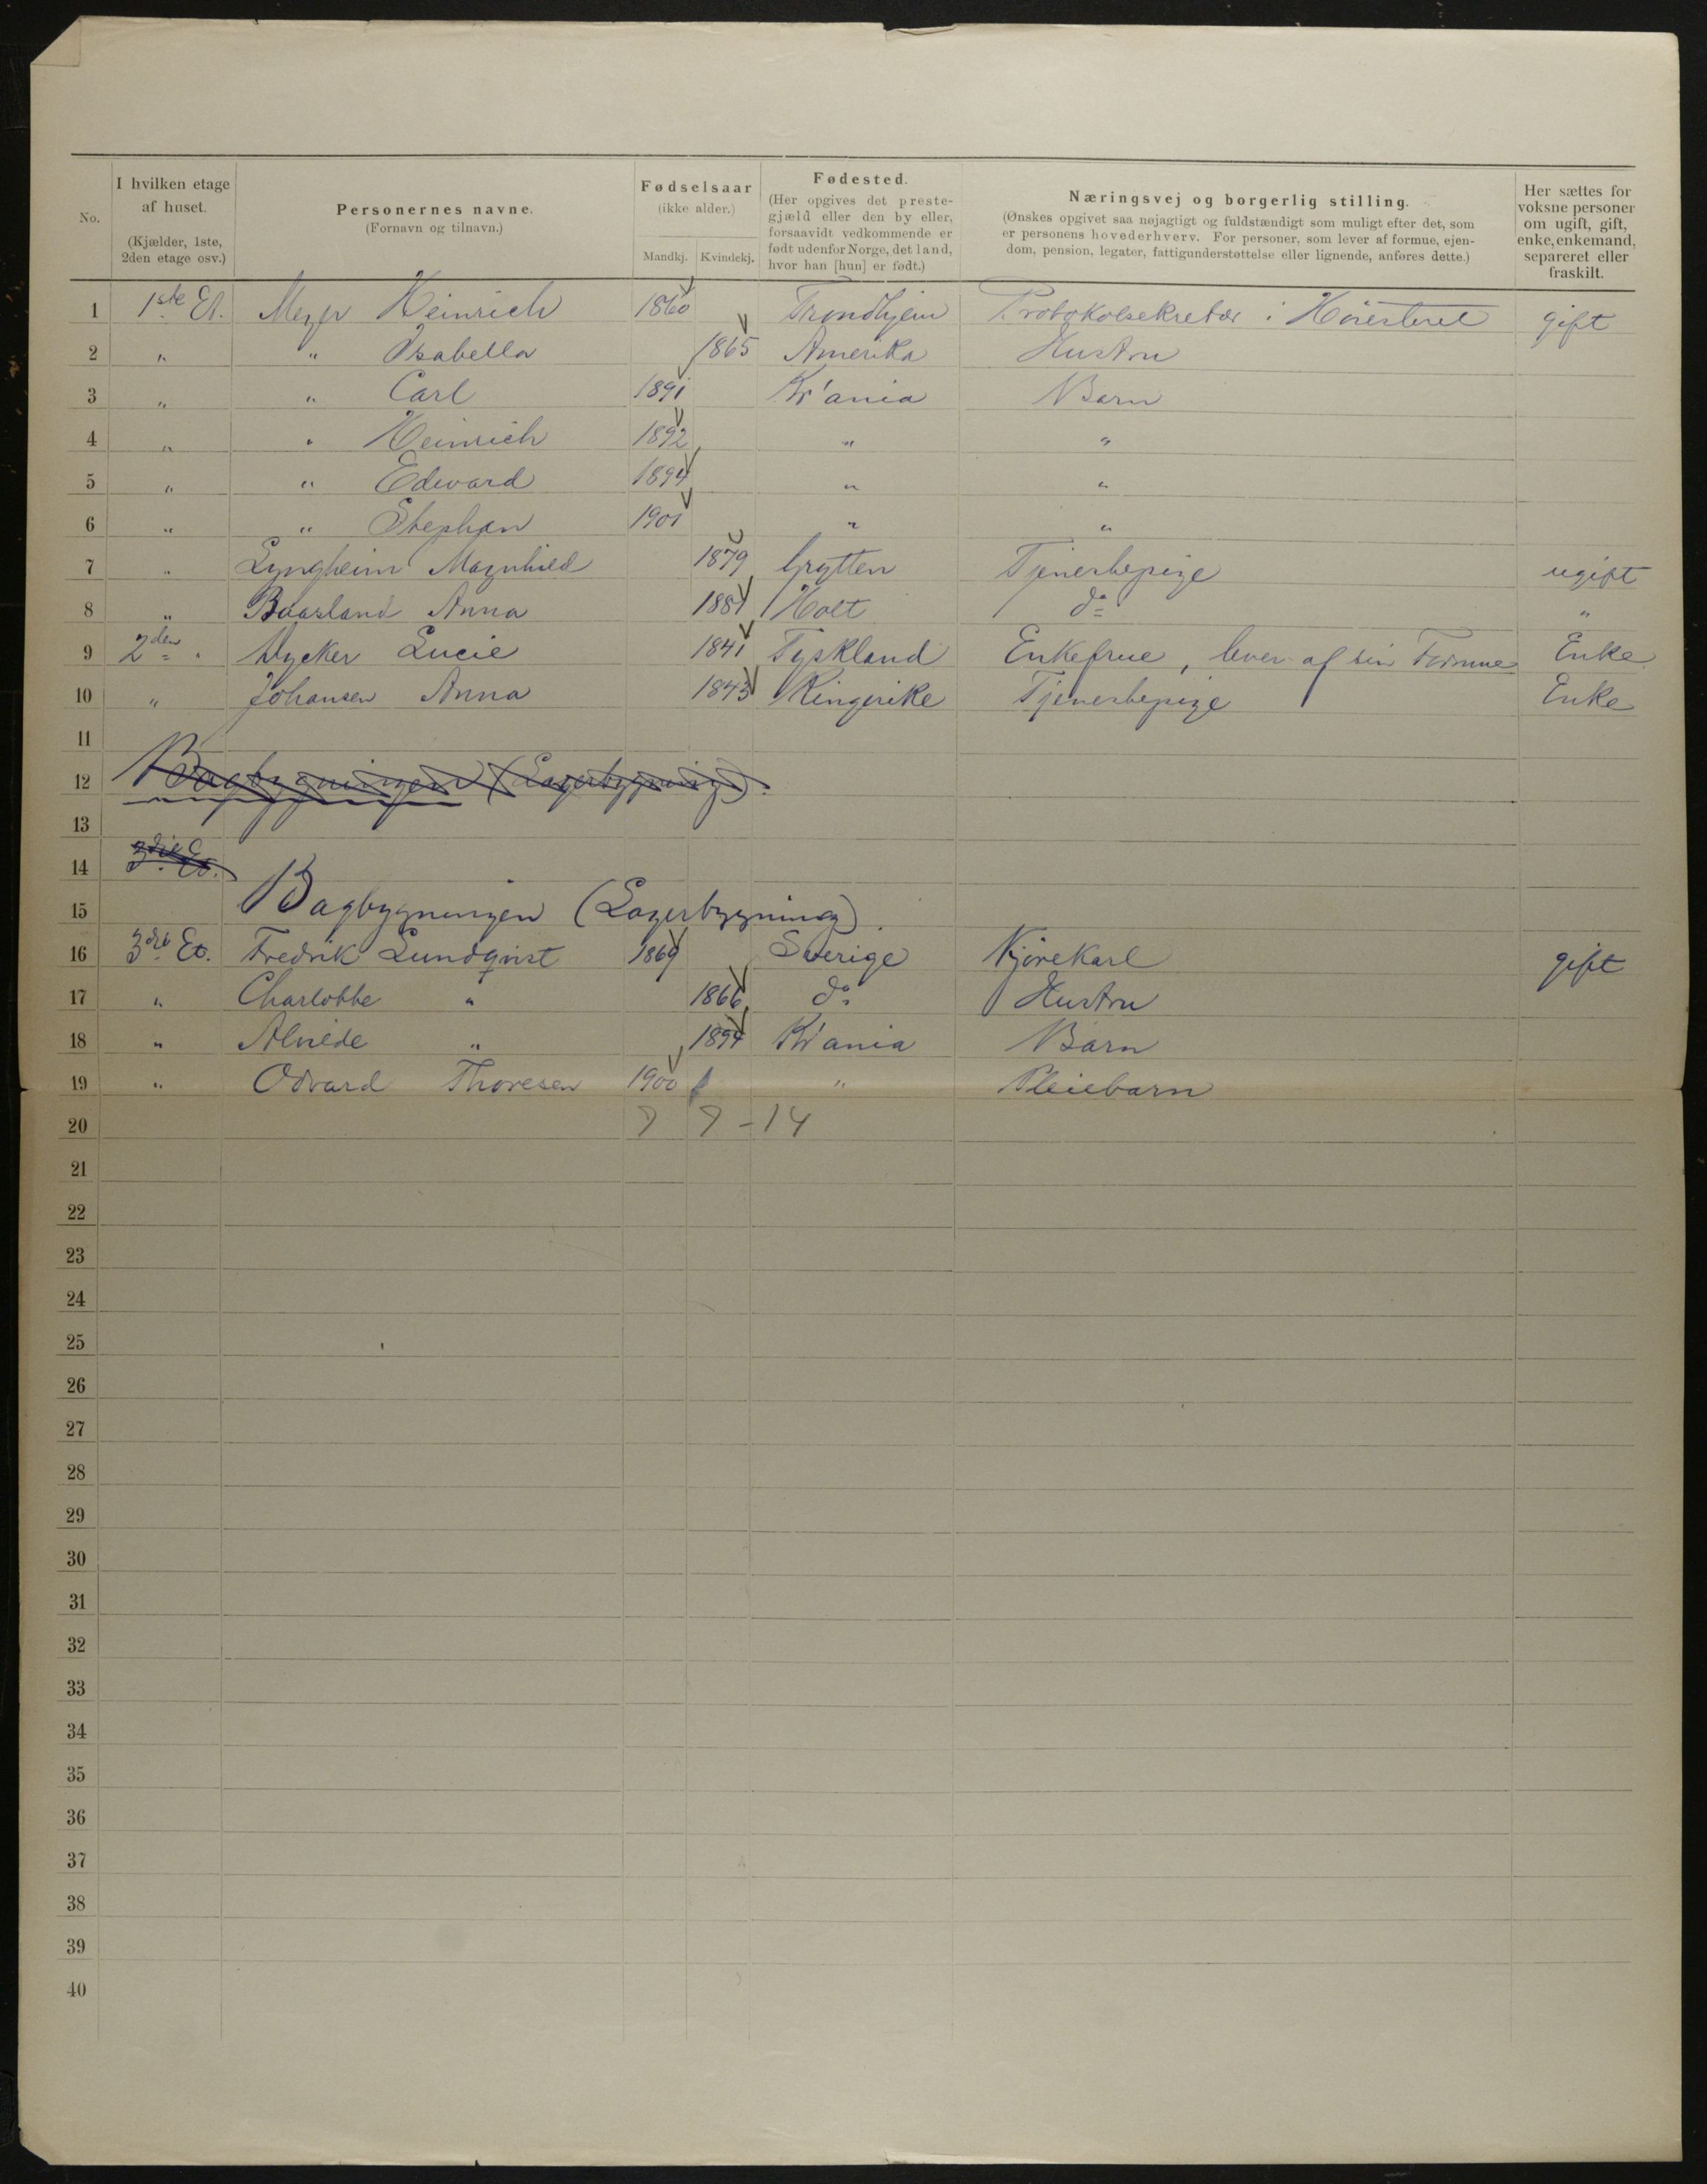 No.
I hvilken etage af huset.
(Kjælder, 1ste, 2den etage osv.)
Personernes navne.
(Fornavn og tilnavn.)
Fødselsaar
(ikke alder.)
Mandkj. Kvindekj.
Fødested.
(Her opgives det preste-
gjæld eller den by eller,
forsaavidt vedkommende er
født udenfor Norge, det land,
hvor han [hun] er født.)
Næringsvej og borgerlig stilling.
(Ønskes opgivet saa nøjagtigt og fuldstændigt som muligt efter det, som
er personens hovederhverv. For personer, som lever af formue, ejen-
dom, pension, legater, fattigunderstøttelse eller lignende, anføres dette.)
Her sættes for
voksne personer
om ugift, gift,
enke, enkemand,
separeret eller
fraskilt.
1 1ste Et. Meyer Heinrich 1860 Trondhjem Protokolsekretær i Høiesteret gift
2 " " Isabella 1865 Amerika Hustru
3 " " Carl 1891 Kr'ania Barn
4 " " Heinrich 1892 " "
5 " " Edward 1894 " "
6 " " Stephan 1901 " "
7 " Lyngheim Magnhild 1879 Grytten Tjenestepige ugift
8 " Baasland Anna 1881 Holt do "
9 2den " Lucie 1841 Tyskland Enkefrue, lever af sin Formue Enke
10 " Johansen Anna 1843 Ringerike Tjenestepige Enke
11
12 Bagbygningen (Lagerbygning).
13
14 3die Et.
15 Bagbygningen (Lagerbygning).
16 3die Et. Fredrik Lundqvist 1869 Sverige Kjørekarl gift
17 " Charlotte " 1866 do Hustru
18 " " 1894 Kr'ania Barn
19 " Odvard Thoresen 1900 " Pleiebarn
20 7 7 - 14
21
22
23
24
25
26
27
28
29
30
31
32
33
34
35
36
37
38
39
40